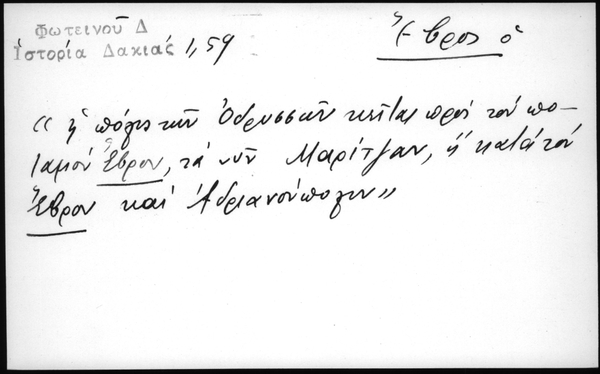 Φωτεινοῦ Δ
Ἱστορία Δακιάς 1,59
Ἕβρος ὁ
« ἡ πόλις τῶν Ὀδρυσσῶν κεῖται πρός τόν πο-
ταμόν Ἕβρον, τά νῦν Μαρίτζαν, ἡ κατά τόν
Ἕβρον καί Ἀδριανούπολιν »